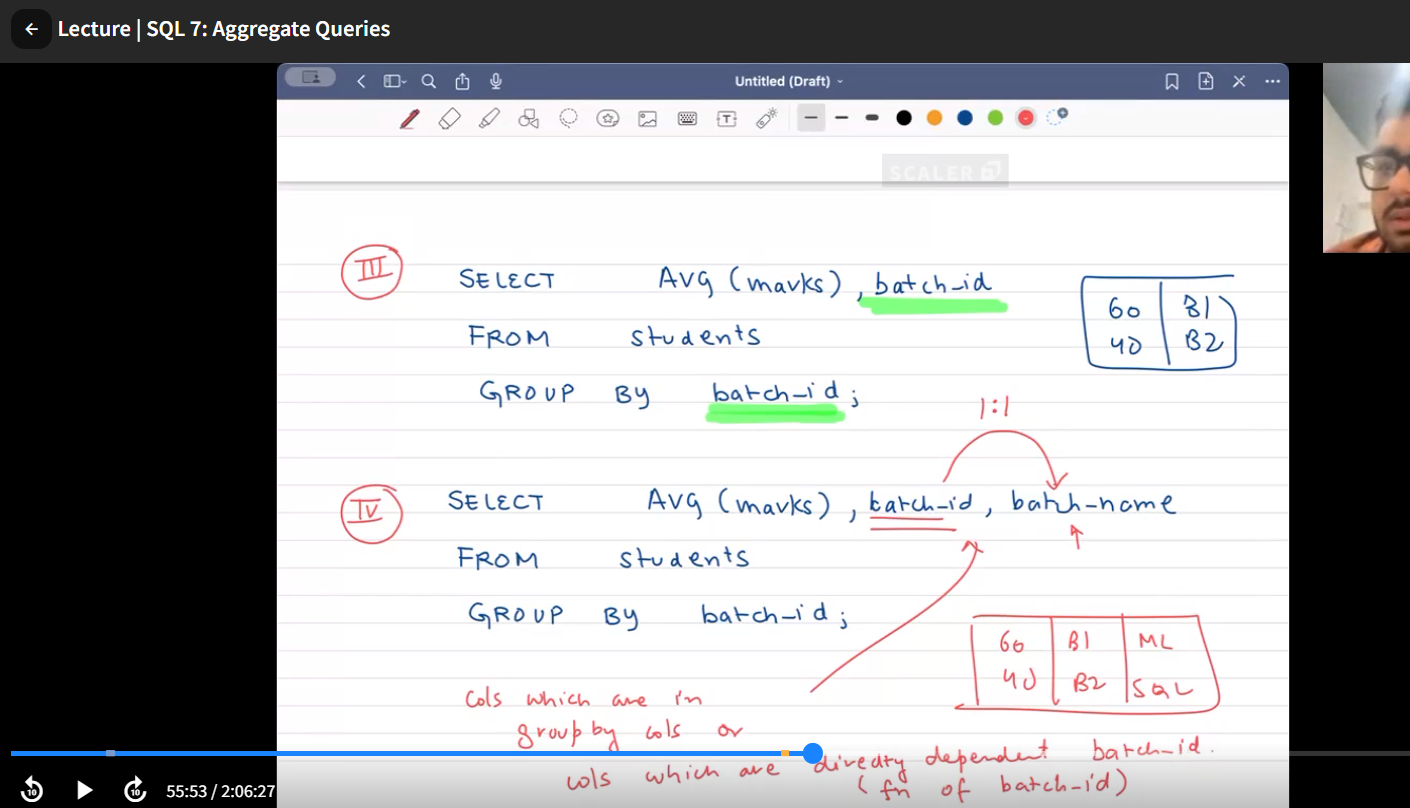 Lecture | SQL 7: Aggregate Queries
Untitled (Draft)
SCALER
III
SELECT AVG (marks), batch_id
FROM students
GROUP BY batch_id;
60 B1
40 B2
1:1
IV
SELECT AVG (marks), batch_id, batch_name
FROM students
GROUP BY batch_id;
60 B1 ML
40 B2 SQL
cols which are in
group by cols or
cols which are directly dependent batch_id.
(fn of batch_id)
10
10
55:53 / 2:06:27